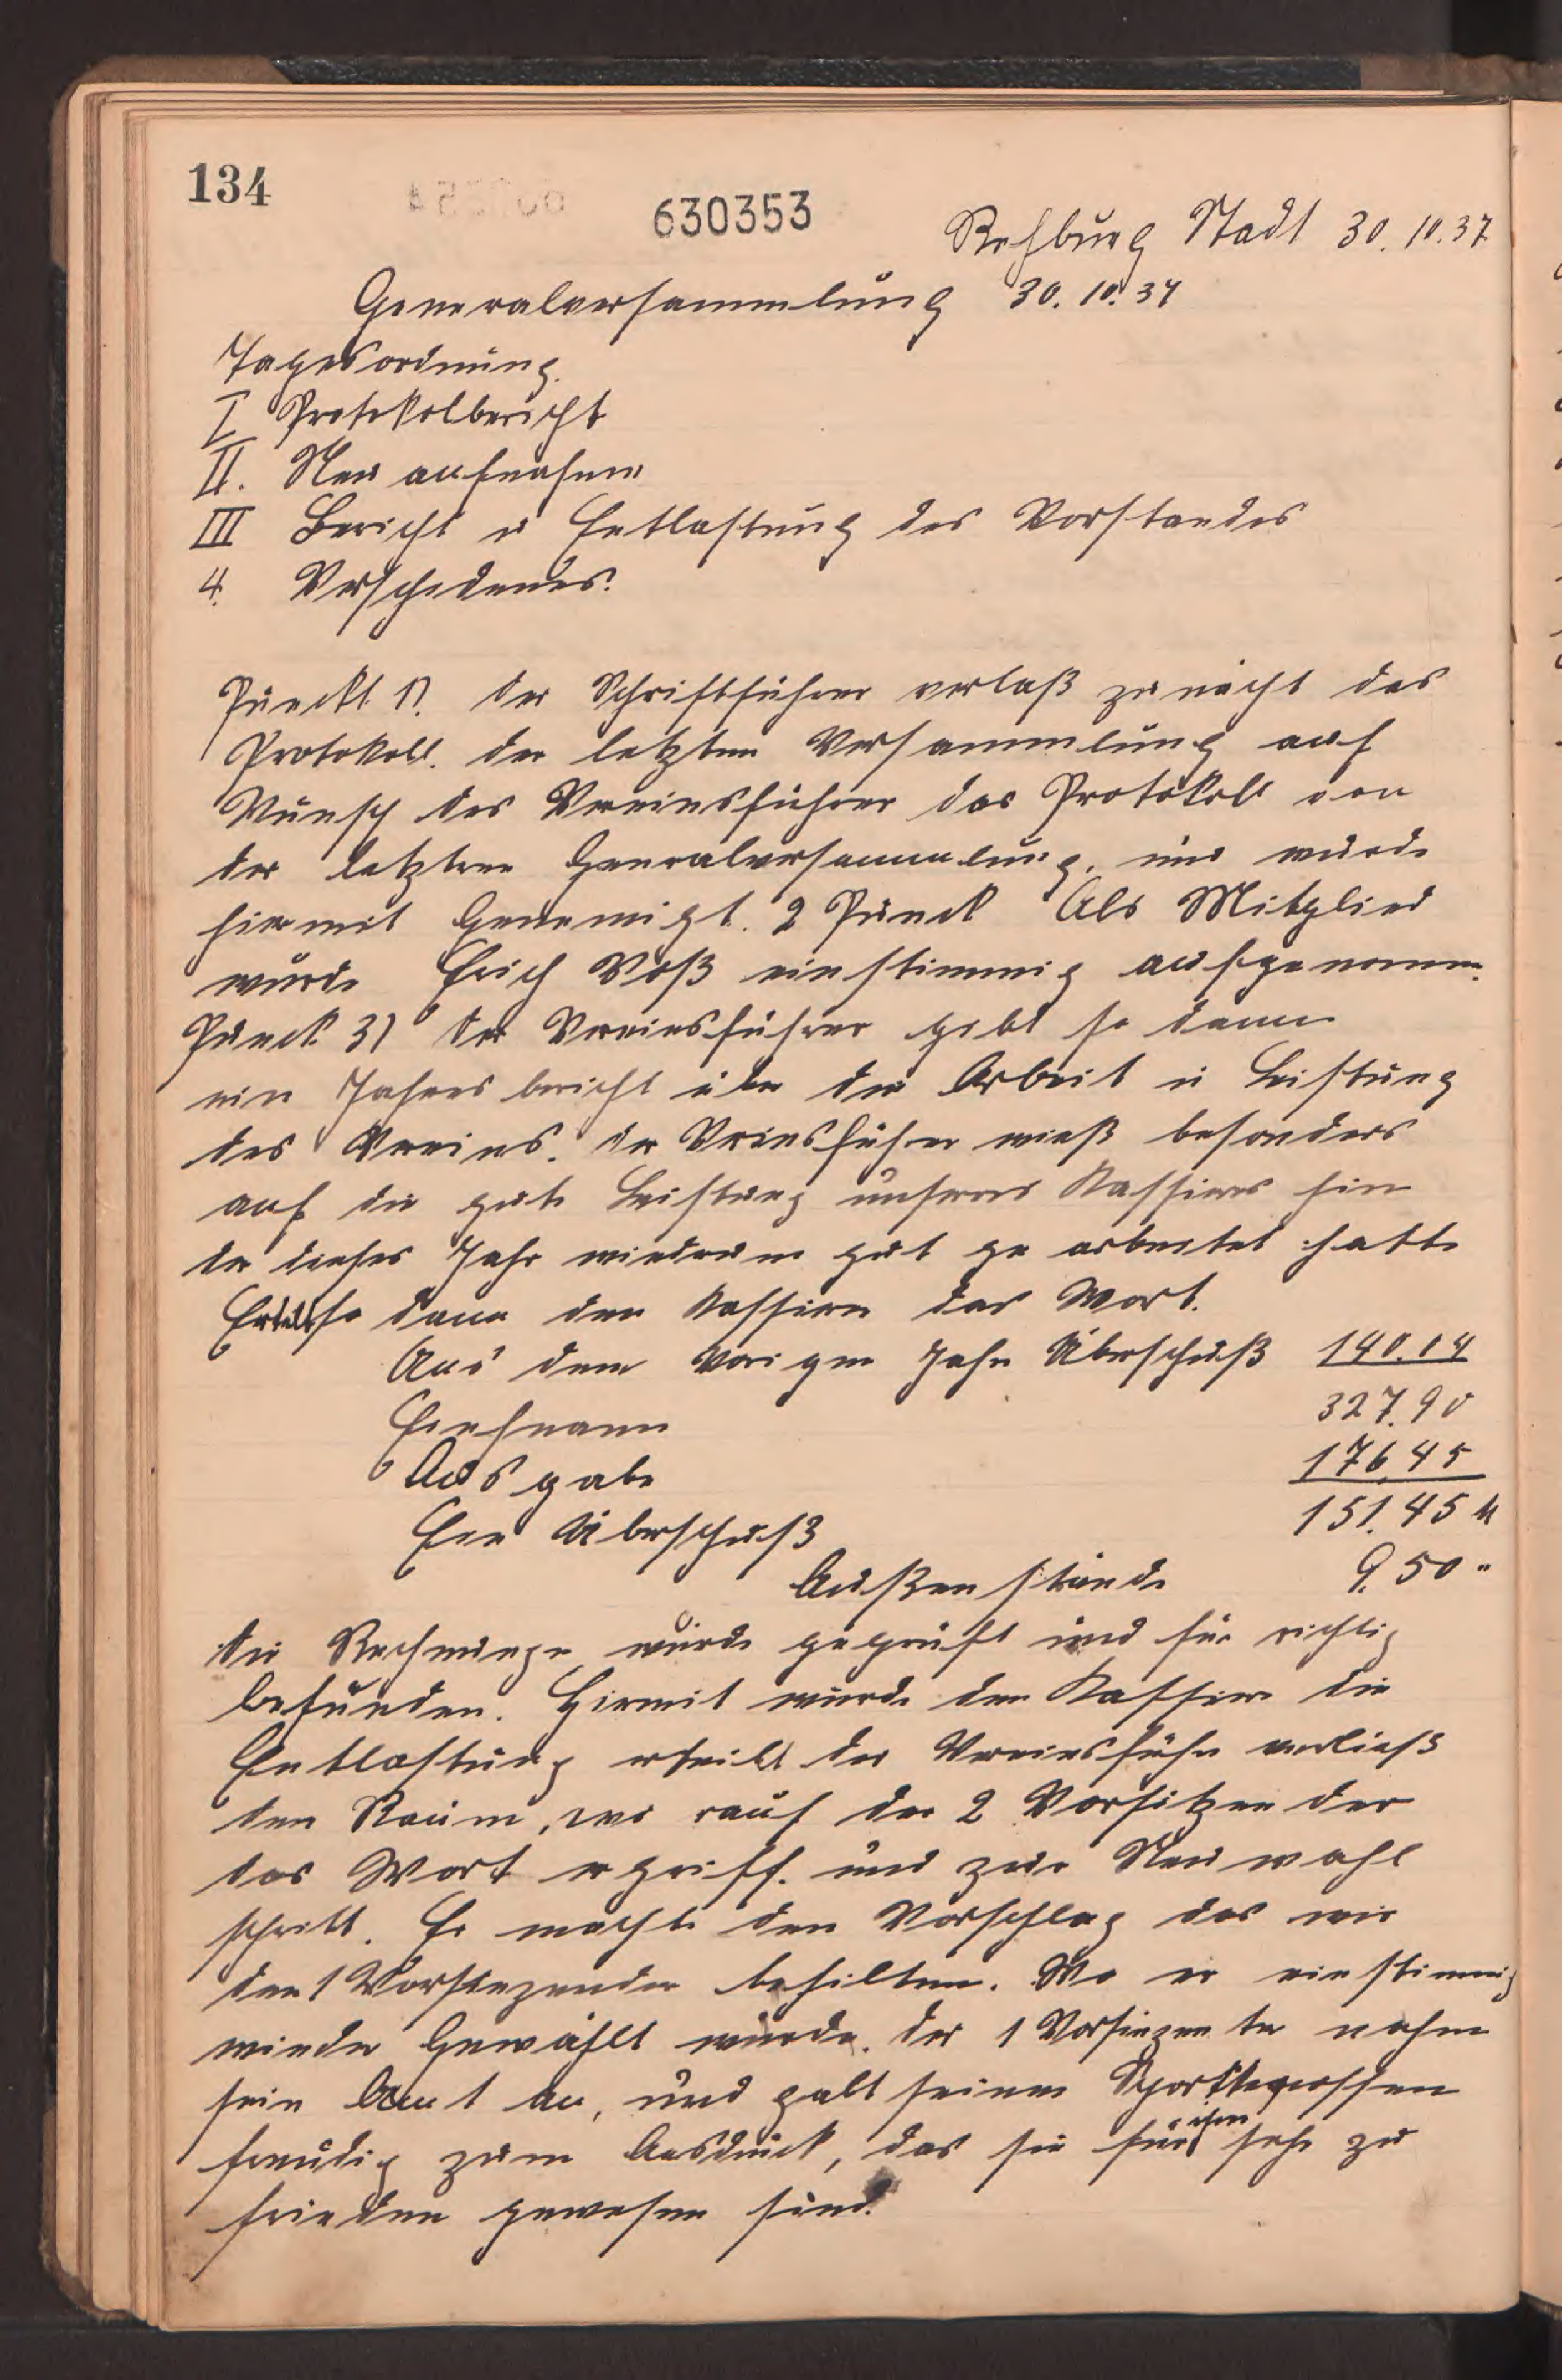 134
630353
Rehburg Stadt 30.10.37
Generalversammlung 30.10.37
Tagesordnung.
I Protokolbericht
II. Neu aufnahme
III Bericht u Entlastung des Vorstandes
4. Verschedenes.
Punckt 1). der Schriftführer verlaß zu nächt das
Protokoll. der letzten Versammlung auf
Wunsch des Vereinsführer das Protokoll von
der letzten Generalversammlung, und wurde
hiermit Genemigt. 2 Punck Als Mitglied
wurde Erich Voß einstimmig aufgenomm.
Punck 3) der Vereinsführer gebt so dann
ein Jahres bericht über die Arbeit u Leistung
des Vereins. der Vriensführer wieß besonders
auf die gute Leistung unseres Kassiers hin
der dieses Jahr wiederum gut ge arbeitet hatte
Erteilt so dann den Kassiern das Wort.
Aus dem Vorigen Jahr Überschuß 140.04
Einnahmen 327.90
Ausgabe 176.45
Ein Überschuß 151.45 M
Außenstände 9.50 "
die Rechnunge wurde geprüft und für richtig
befunden. Hirmit wurde den Kassier die
Entlastung erteilt der Vereinsführ verließ
den Raum, wo rauf der 2 Vorsitzen der
das Wort ergriff. und zur Neuwahl
schritt. Er machte den Vorschlag das wir
den 1 Vorsitzenden behilten. Wo er einstimmig
wieder Gewählt wurde. der 1 Vorsitzen te nahm
sein Amt an, und galt seinen Sportkegnossen
freudig zum Ausdruck, das sie für ihm sehr zu
frieden gewesen sind.